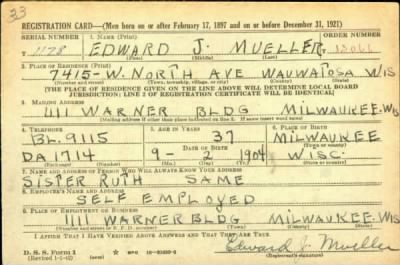 33
REGISTRATION CARD—(Men born on or after February 17, 1897 and on or before December 31, 1921)
SERIAL NUMBER 1. NAME (Print) ORDER NUMBER
1178 EDWARD J. MUELLER
(First) (Middle) (Last)
2. PLACE OF RESIDENCE (Print)
7415-W. NORTH AVE WAUWATOSA WIS
(Number and street) (Town, township, village, or city) (County) (State)
[THE PLACE OF RESIDENCE GIVEN ON THE LINE ABOVE WILL DETERMINE LOCAL BOARD
JURISDICTION; LINE 2 OF REGISTRATION CERTIFICATE WILL BE IDENTICAL]
3. MAILING ADDRESS
1111 WARNER BLDG MILWAUKEE-WIS
[Mailing address if other than place indicated on line 2. If same insert word same]
4. TELEPHONE 5. AGE IN YEARS 6. PLACE OF BIRTH
BL. 9115 37 MILWAUKEE
DATE OF BIRTH (Town or county)
DA 1714 9- 2 1904 WISC.
(Exchange) (Number) (Mo.) (Day) (Yr.) (State or country)
7. NAME AND ADDRESS OF PERSON WHO WILL ALWAYS KNOW YOUR ADDRESS
SISTER RUTH SAME
8. EMPLOYER'S NAME AND ADDRESS
SELF EMPLOYED
9. PLACE OF EMPLOYMENT OR BUSINESS
1111 WARNER BLDG MILWAUKEE-WIS
(Number and street or R. F. D. number) (Town) (County) (State)
I AFFIRM THAT I HAVE VERIFIED ABOVE ANSWERS AND THAT THEY ARE TRUE.
D. S. S. Form 1
(Revised 1-1-42) (over) Edward J. Mueller
(Registrant's signature)